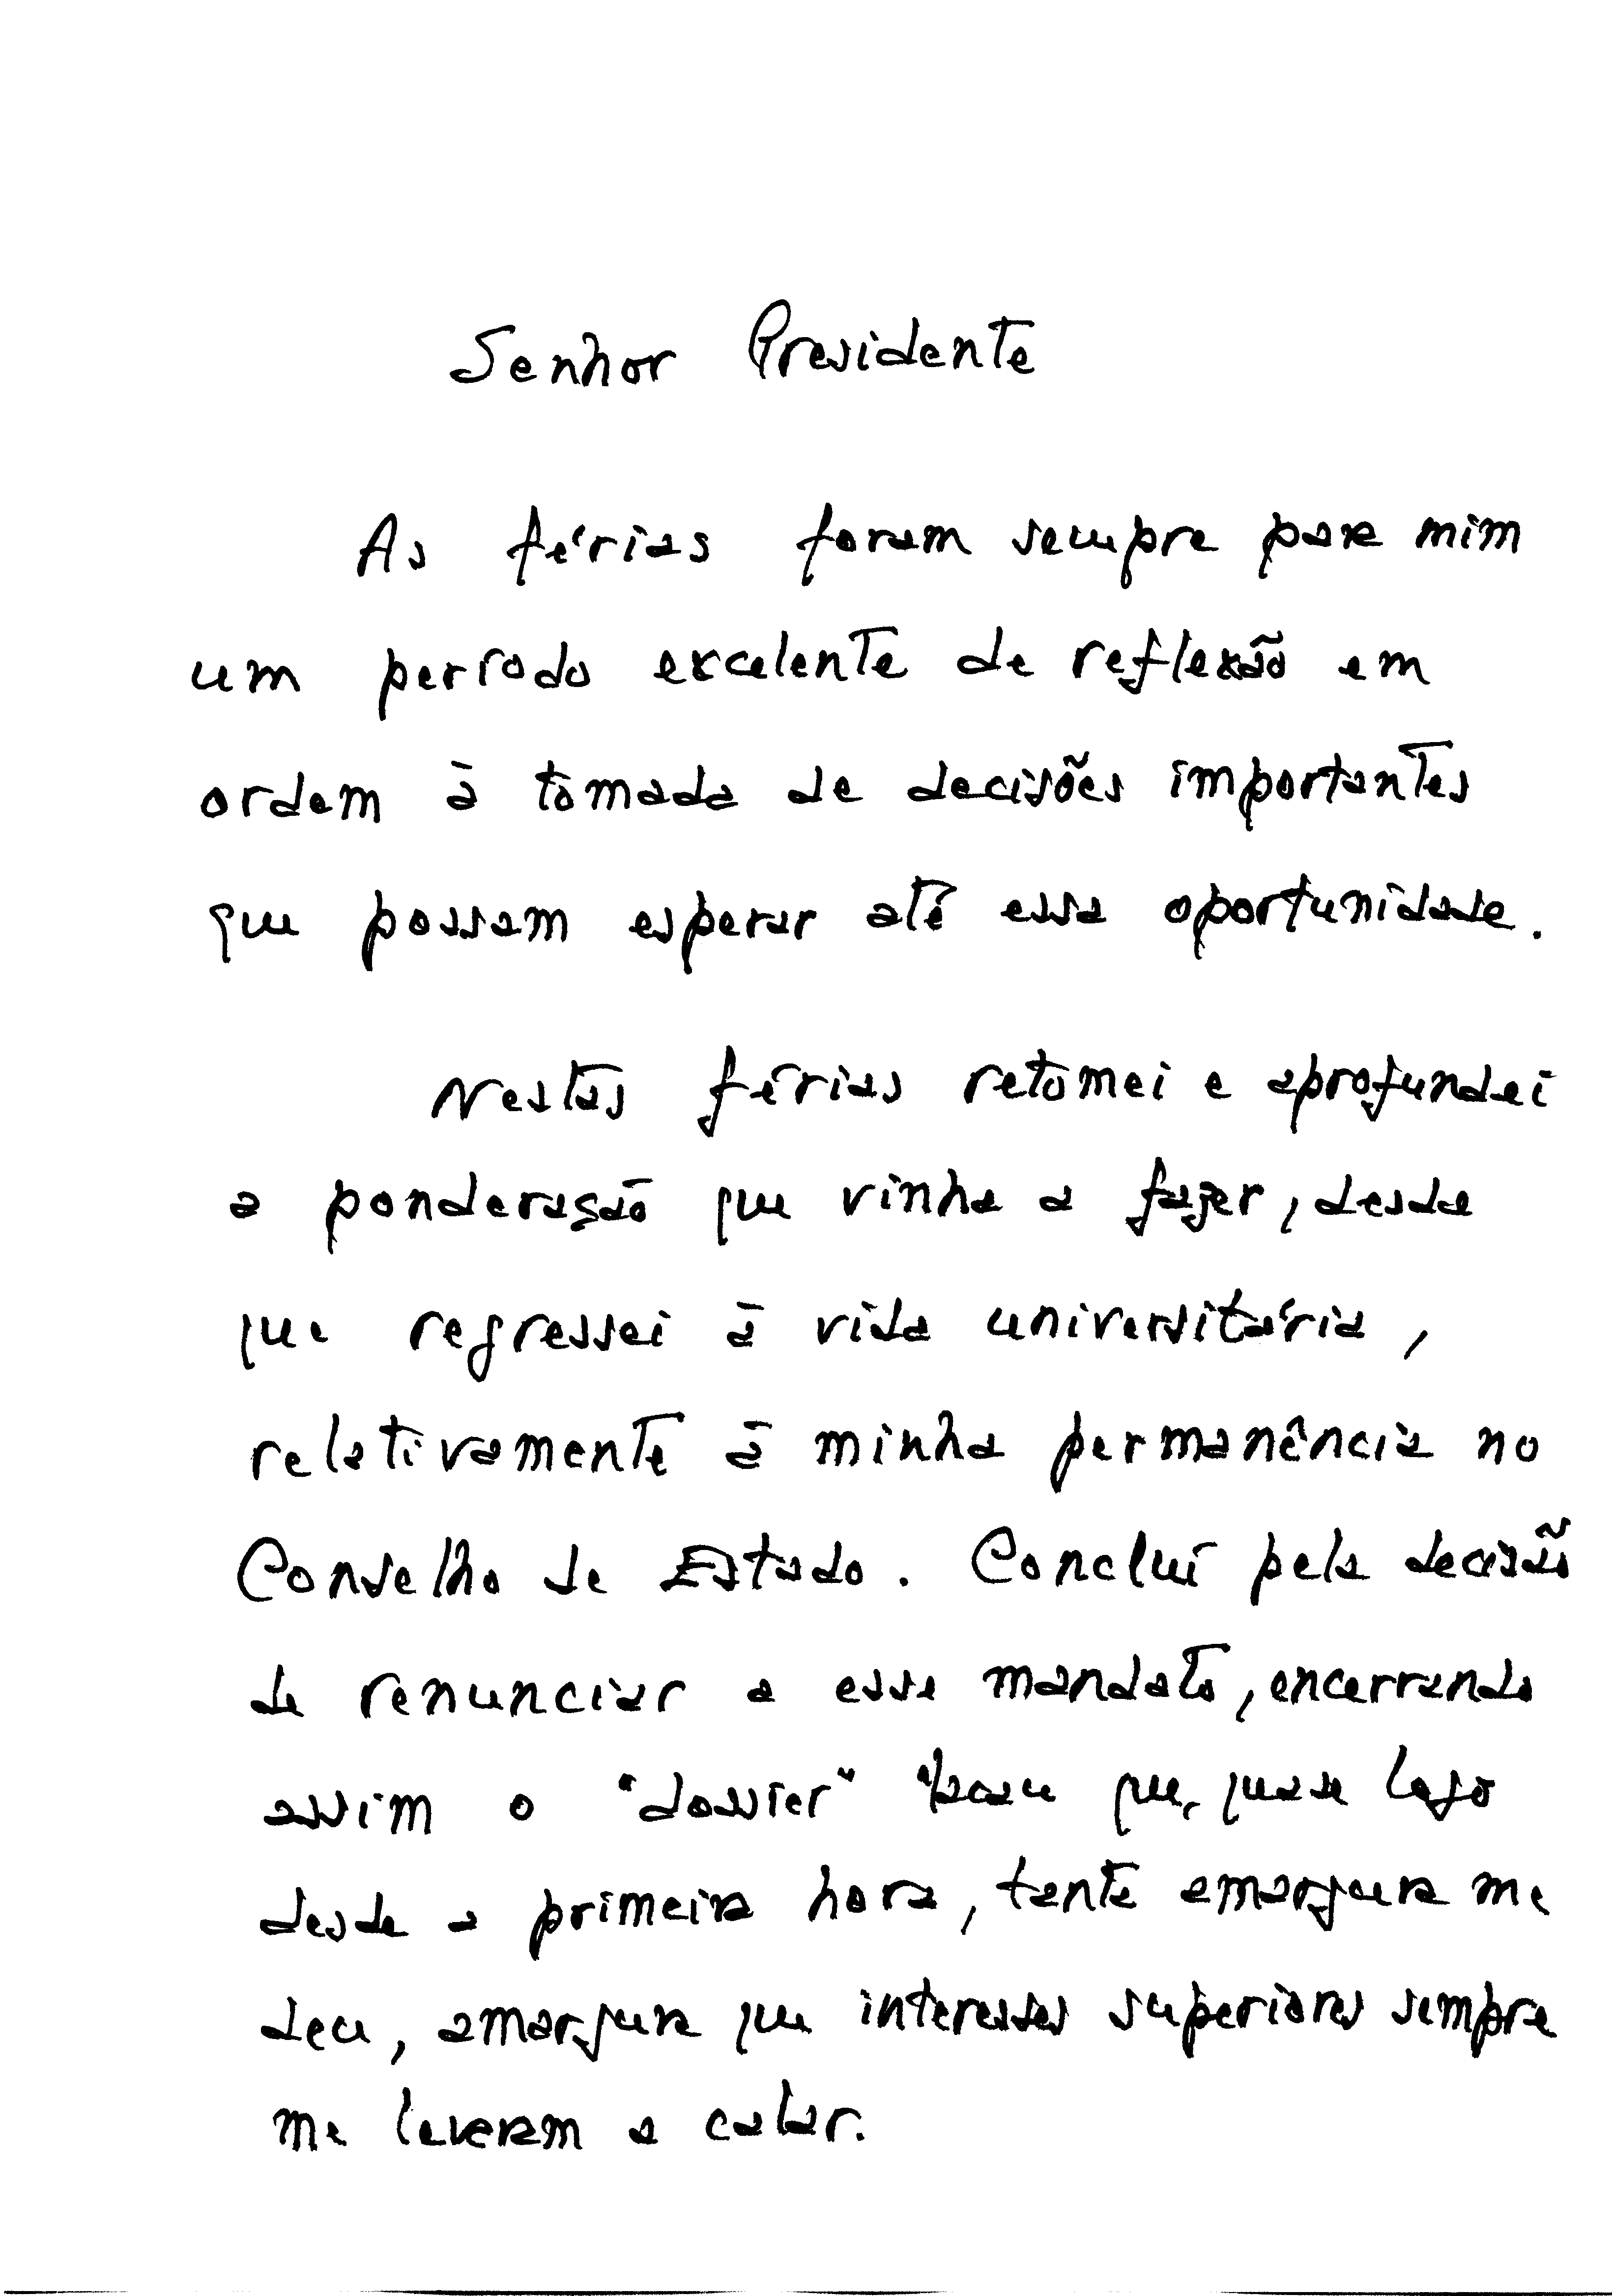 Senhor Presidente
As férias foram sempre para mim
um período excelente de reflexão em
ordem à tomada de decisões importantes
que possam esperar até essa oportunidade.
Nestas férias retomei e aprofundei
a ponderação que vinha a fazer, desde
que regressei à vida universitária,
relativamente à minha permanência no
Conselho de Estado. Concluí pela decisão
de renunciar a esse mandato, encerrando
assim o "dossier" Macau que, quase logo
desde a primeira hora, tanta amargura me
deu, amargura que interesses superiores sempre
me levaram a calar.